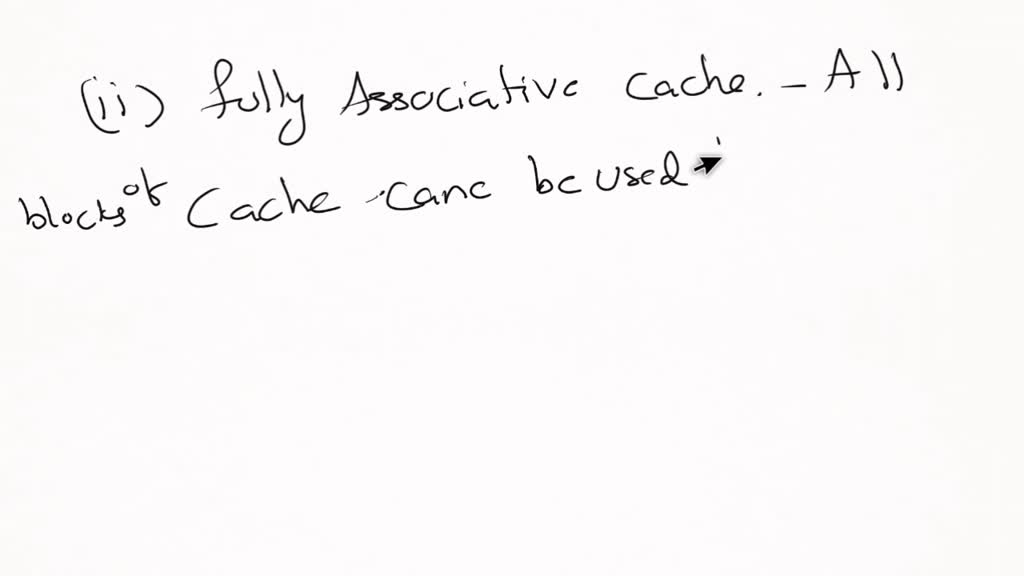 (ii) fully Associative Cache. - All
blocks of Cache canc be used